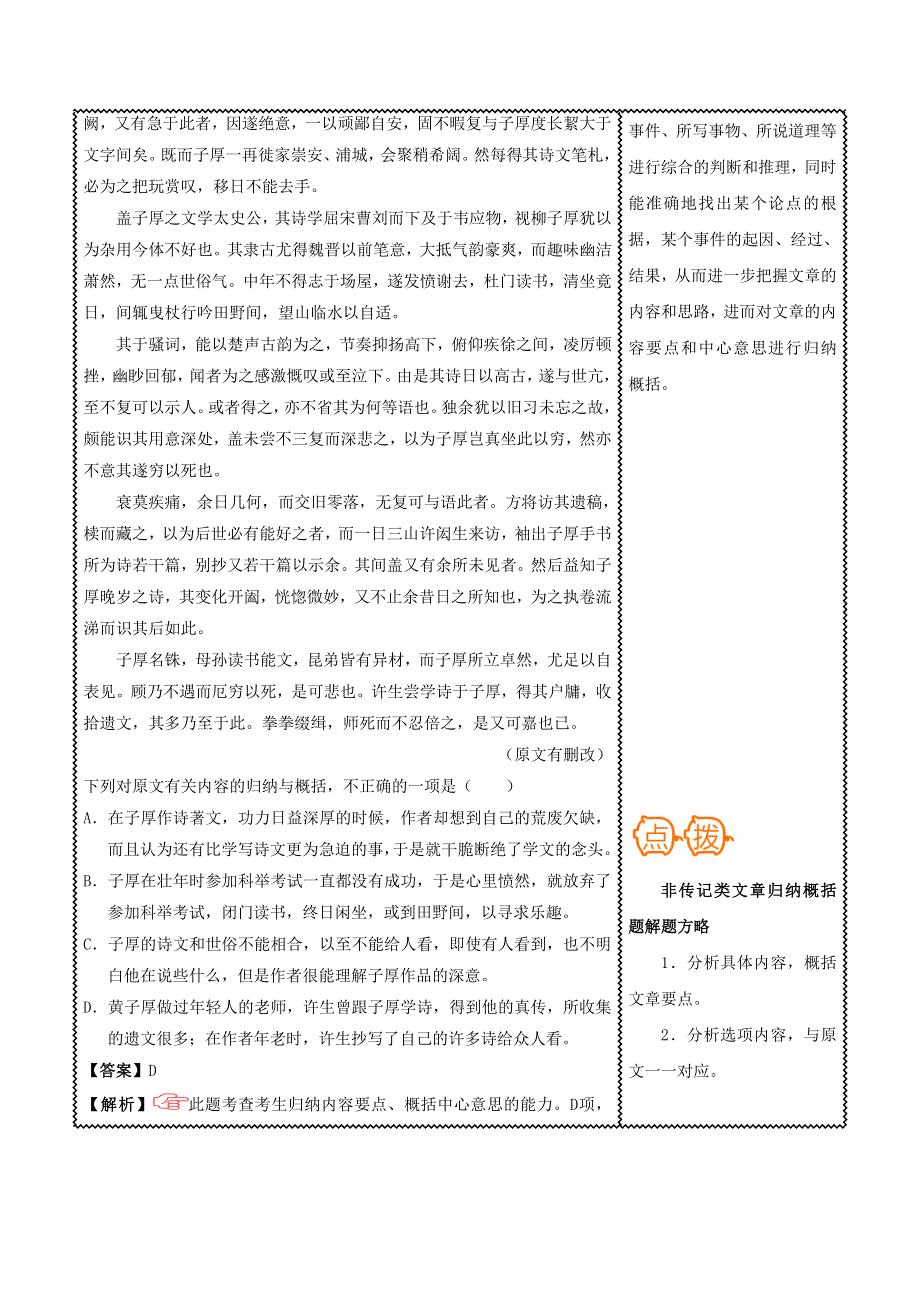 阙，又有急于此者，因遂绝意，一以顽鄙自安，固不暇复与子厚度长絜大于
文字间矣。既而子厚一再徙家崇安、浦城，会聚稍希阔。然每得其诗文笔札，
必为之把玩赏叹，移日不能去手。
盖子厚之文学太史公，其诗学屈宋曹刘而下及于韦应物，视柳子厚犹以
为杂用今体不好也。其隶古尤得魏晋以前笔意，大抵气韵豪爽，而趣味幽洁
萧然，无一点世俗气。中年不得志于场屋，遂发愤谢去，杜门读书，清坐竟
日，间辄曳杖行吟田野间，望山临水以自适。
其于骚词，能以楚声古韵为之，节奏抑扬高下，俯仰疾徐之间，凌厉顿
挫，幽眇回郁，闻者为之感激慨叹或至泣下。由是其诗日以高古，遂与世亢，
至不复可以示人。或者得之，亦不省其为何等语也。独余犹以旧习未忘之故，
颇能识其用意深处，盖未尝不三复而深悲之，以为子厚岂真坐此以穷，然亦
不意其遂穷以死也。
衰莫疾痛，余日几何，而交旧零落，无复可与语此者。方将访其遗稿，
椟而藏之，以为后世必有能好之者，而一日三山许闳生来访，袖出子厚手书
所为诗若干篇，别抄又若干篇以示余。其间盖又有余所未见者。然后益知子
厚晚岁之诗，其变化开阖，恍惚微妙，又不止余昔日之所知也，为之执卷流
涕而识其后如此。
子厚名铢，母孙读书能文，昆弟皆有异材，而子厚所立卓然，尤足以自
表见。顾乃不遇而厄穷以死，是可悲也。许生尝学诗于子厚，得其户牖，收
拾遗文，其多乃至于此。拳拳缀缉，师死而不忍倍之，是又可嘉也已。
（原文有删改）
下列对原文有关内容的归纳与概括，不正确的一项是（　　）
A．在子厚作诗著文，功力日益深厚的时候，作者却想到自己的荒废欠缺，
而且认为还有比学写诗文更为急迫的事，于是就干脆断绝了学文的念头。
B．子厚在壮年时参加科举考试一直都没有成功，于是心里愤然，就放弃了
参加科举考试，闭门读书，终日闲坐，或到田野间，以寻求乐趣。
C．子厚的诗文和世俗不能相合，以至不能给人看，即使有人看到，也不明
白他在说些什么，但是作者很能理解子厚作品的深意。
D．黄子厚做过年轻人的老师，许生曾跟子厚学诗，得到他的真传，所收集
的遗文很多；在作者年老时，许生抄写了自己的许多诗给众人看。
【答案】D
【解析】此题考查考生归纳内容要点、概括中心意思的能力。D项，
事件、所写事物、所说道理等
进行综合的判断和推理，同时
能准确地找出某个论点的根
据，某个事件的起因、经过、
结果，从而进一步把握文章的
内容和思路，进而对文章的内
容要点和中心意思进行归纳
概括。
点拨
非传记类文章归纳概括
题解题方略
1．分析具体内容，概括
文章要点。
2．分析选项内容，与原
文一一对应。